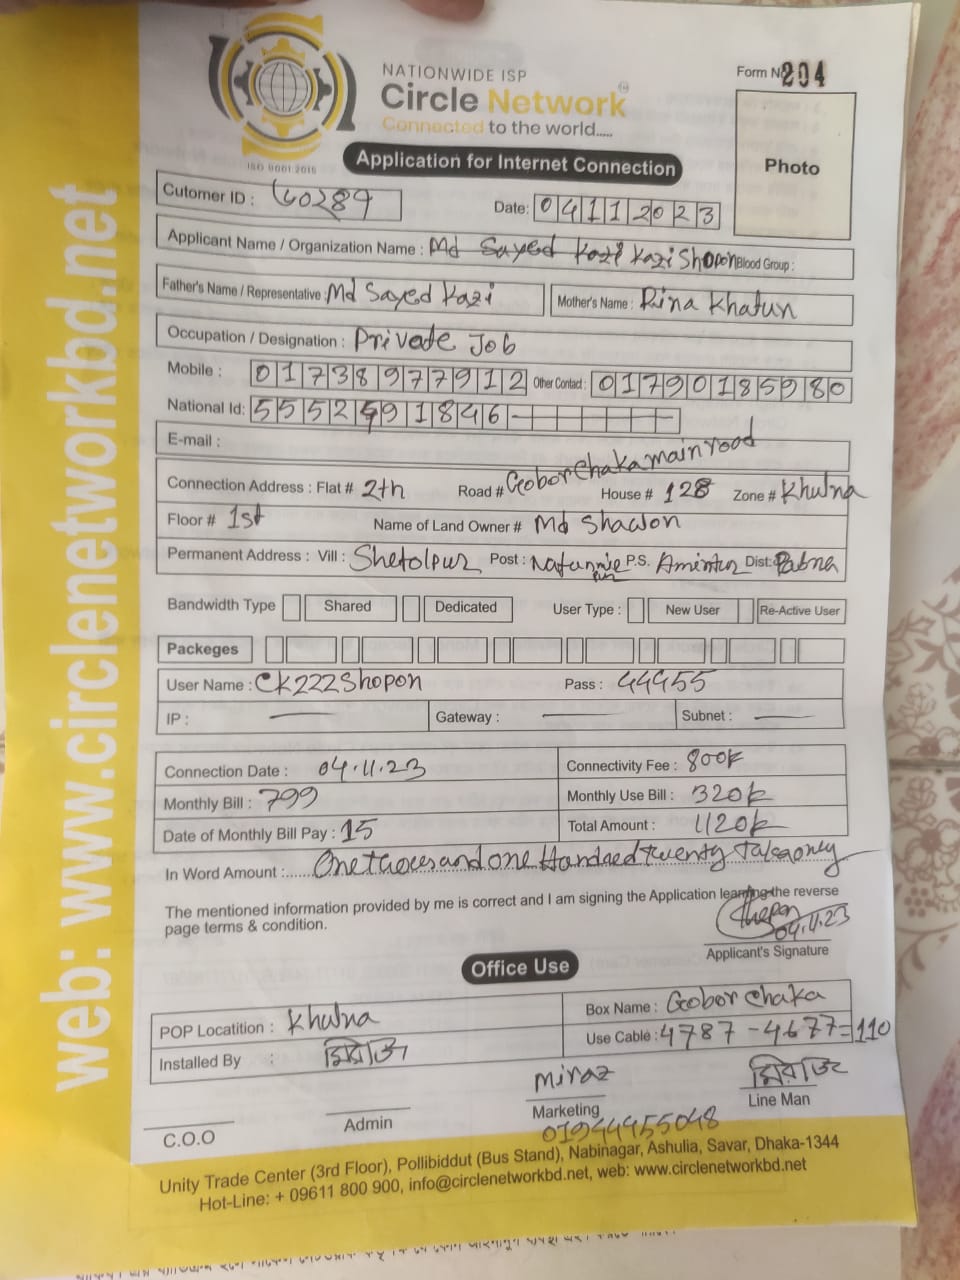 NATIONWIDE ISP
Circle Network
Connected to the world.....
ISO 9001:2015
Form No 204
Photo
Application for Internet Connection
Cutomer ID : 60289
Date: 04112023
Applicant Name / Organization Name : Md Sayed Kazi Kazi Shopon Blood Group :
Father's Name / Representative : Md Sayed Kazi Mother's Name : Rina Khatun
Occupation / Designation : Private Job
Mobile : 01738977912 Other Contact : 01790185980
National Id: 5552491846
E-mail :
Connection Address : Flat # 2th Road # Goborchaka main road House # 128 Zone # Khulna
Floor # 1st Name of Land Owner # Md Shawon
Permanent Address : Vill : Shetolpur Post : P.S. Dist: Pabna
Bandwidth Type Shared Dedicated User Type : New User Re-Active User
Packeges
User Name : CK222Shopon Pass : 44455
IP : — Gateway : — Subnet : —
Connection Date : 04.11.23 Connectivity Fee : 800tk
Monthly Bill : 799 Monthly Use Bill : 320tk
Date of Monthly Bill Pay : 15 Total Amount : 1120tk
In Word Amount :...... One thousand one Handred twenty Taka only
The mentioned information provided by me is correct and I am signing the Application learning the reverse
page terms & condition.
Shopon
04.11.23
Applicant's Signature
Office Use
POP Locatition : Khulna Box Name : Gobor Chaka
Installed By : মিরাজ Use Cable : 4787 - 4677=110
Miraz মিরাজ
C.O.O Admin Marketing Line Man
01944955048
Unity Trade Center (3rd Floor), Pollibiddut (Bus Stand), Nabinagar, Ashulia, Savar, Dhaka-1344
Hot-Line: + 09611 800 900, info@circlenetworkbd.net, web: www.circlenetworkbd.net
web: www.circlenetworkbd.net